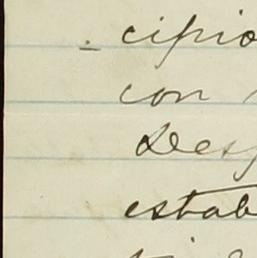 cipio
con
Desp
estab